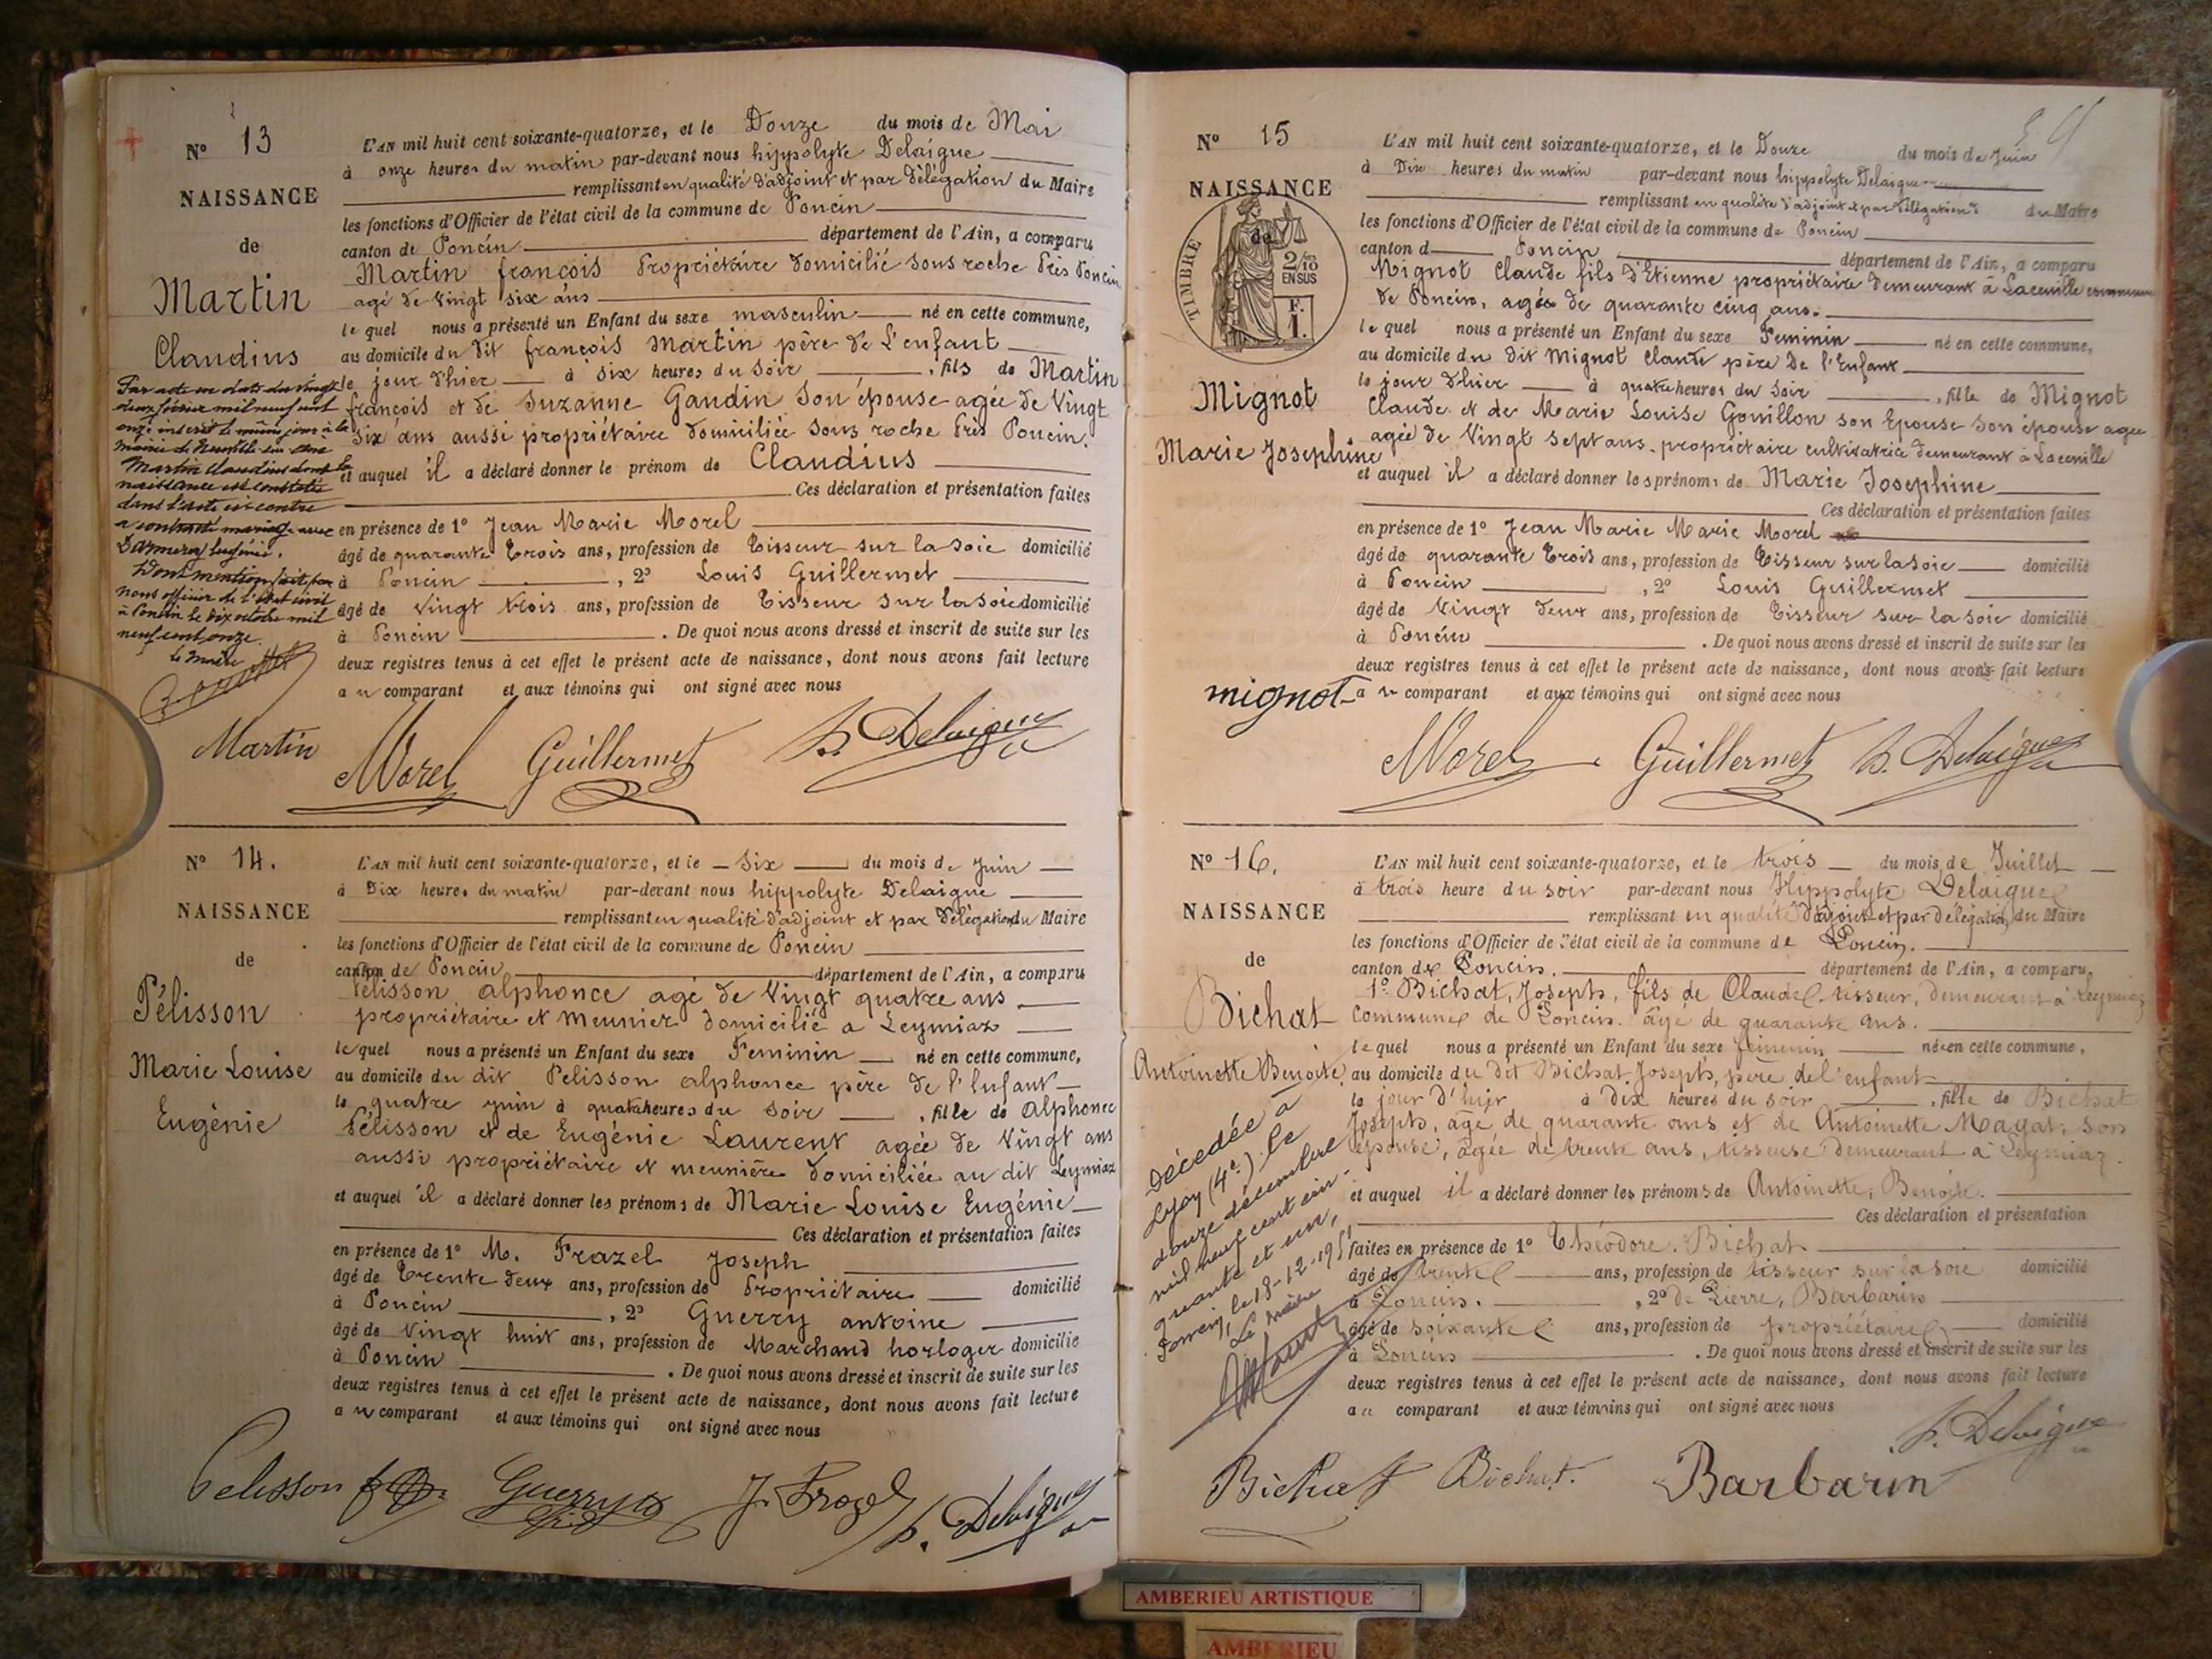 N° 13
NAISSANCE
de
Martin
Claudius
L'AN mil huit cent soixante-quatorze, et le Douze du mois de Mai
à onze heures du matin par-devant nous hippolyte Delaigue
remplissant en qualité d'adjoint et par délégation du Maire
les fonctions d'Officier de l'état civil de la commune de Poncin
canton de Poncin département de l'Ain, a comparu
Martin françois Propriétaire domicilié sous roche Près Poncin
agé de Vingt six ans
le quel nous a présenté un Enfant du sexe masculin né en cette commune,
au domicile du dit françois Martin père de L'enfant
le jour d'hier à six heures du soir , fils de Martin
françois et de Suzanne Gaudin son épouse agée de Vingt
six ans aussi propriétaire domiciliée sous roche Près Poncin.
et auquel il a déclaré donner le prénom de Claudius
Ces déclaration et présentation faites
en présence de 1° Jean Marie Morel
âgé de quarante trois ans, profession de Tisseur sur la soie domicilié
à Poncin , 2° Louis Guillermet
âgé de Vingt trois ans, profession de Tisseur sur la soie domicilié
à Poncin . De quoi nous avons dressé et inscrit de suite sur les
deux registres tenus à cet effet le présent acte de naissance, dont nous avons fait lecture
au comparant et aux témoins qui ont signé avec nous
Par acte en date du vingt
deux février mil neuf cent
onze inscrit le même jour à la
mairie de Neuville sur Ain
Martin Claudius dont la
naissance est constatée
dans l'acte ci-contre
a contracté mariage avec
Eugénie.
Dont mention faite par
nous officier de l'état civil
à Poncin le dix octobre mil
neuf cent onze.
Le Maire
Martin Morel Guillermet h. Delaigue
N° 14.
NAISSANCE
de
Pélisson
Marie Louise
Eugénie
L'AN mil huit cent soixante-quatorze, et le Six du mois de Juin
à Dix heures du matin par-devant nous hippolyte Delaigue
remplissant en qualité d'adjoint et par délégation du Maire
les fonctions d'Officier de l'état civil de la commune de Poncin
canton de Poncin département de l'Ain, a comparu
Pélisson alphonce agé de Vingt quatre ans
propriétaire et meunier domicilié a Leymiaz
le quel nous a présenté un Enfant du sexe Feminin né en cette commune,
au domicile du dit Pelisson alphonce père de l'Enfant
le quatre juin à quatre heures du soir , fille de Alphonce
Pélisson et de Eugénie Laurent agée de Vingt ans
aussi propriétaire et meunière domiciliée au dit Leymiaz
et auquel il a déclaré donner les prénoms de Marie Louise Eugénie
Ces déclaration et présentation faites
en présence de 1° M. Frazel Joseph
âgé de Trente deux ans, profession de Propriétaire domicilié
à Poncin , 2° Guerry antoine
âgé de Vingt huit ans, profession de Marchand horloger domicilié
à Poncin . De quoi nous avons dressé et inscrit de suite sur les
deux registres tenus à cet effet le présent acte de naissance, dont nous avons fait lecture
au comparant et aux témoins qui ont signé avec nous
Pelisson Guerry J. Frazel h. Delaigue
N° 15
NAISSANCE
de
TIMBRE
2/10
EN SUS
F.
1.
Mignot
Marie Josephine
L'AN mil huit cent soixante-quatorze, et le Douze du mois de Juin
à Dix heures du matin par-devant nous hippolyte Delaigue
remplissant en qualité d'adjoint et par délégation du Maire
les fonctions d'Officier de l'état civil de la commune de Poncin
canton d Poncin département de l'Ain, a comparu
Mignot Claude fils d'Etienne propriétaire demeurant à Lacueille commune
de Poncin, agée de quarante cinq ans.
le quel nous a présenté un Enfant du sexe Feminin né en cette commune,
au domicile du dit Mignot Claude père de l'Enfant
le jour d'hier à quatre heures du soir , fille de Mignot
Claude et de Marie Louise Gouillon son Epouse son épouse agée
agée de Vingt sept ans, propriétaire cultivatrice demeurant à Lacueille
et auquel il a déclaré donner les prénoms de Marie Josephine
Ces déclaration et présentation faites
en présence de 1° Jean Marie Marie Morel
âgé de quarante trois ans, profession de Tisseur sur la soie domicilié
à Poncin , 2° Louis Guillermet
âgé de Vingt deux ans, profession de Tisseur sur la soie domicilié
à Poncin . De quoi nous avons dressé et inscrit de suite sur les
deux registres tenus à cet effet le présent acte de naissance, dont nous avons fait lecture
au comparant et aux témoins qui ont signé avec nous
mignot
Morel Guillermet h. Delaigue
N° 16.
NAISSANCE
de
Bichat
Antoinette Benoite
L'AN mil huit cent soixante-quatorze, et le trois du mois de Juillet
à trois heure du soir par-devant nous Hippolyte Delaigue
remplissant en qualité d'adjoint et par délégation du Maire
les fonctions d'Officier de l'état civil de la commune de Poncin.
canton de Poncin. département de l'Ain, a comparu,
1° Bichat, Joseph, fils de Claude tisseur, demeurant à Leymiaz
Commune de Poncin. âgé de quarante ans.
le quel nous a présenté un Enfant du sexe feminin née en cette commune,
au domicile du dit Bichat Joseph, père de l'enfant
le jour d'hier à dix heures du soir , fille de Bichat
Joseph, âgé de quarante ans et de Antoinette Magat, son
épouse, âgée de trente ans, tisseuse demeurant à Leymiaz.
et auquel il a déclaré donner les prénoms de Antoinette, Benoite.
Ces déclaration et présentation
faites en présence de 1° Théodore. Bichat
âgé de trente ans, profession de tisseur sur la soie domicilié
à Poncin. , 2° de Pierre, Barbarin
âgé de soixante ans, profession de propriétaire domicilié
à Poncin . De quoi nous avons dressé et inscrit de suite sur les
deux registres tenus à cet effet le présent acte de naissance, dont nous avons fait lecture
au comparant et aux témoins qui ont signé avec nous
Décédée à
Lyon (4e) le
douze décembre
mil neuf cent cin-
quante et un,
Poncin, le 18-12-1951
Le Maire
h. Delaigue
Bichat Bichat. Barbarin
AMBERIEU ARTISTIQUE
AMBERIEU